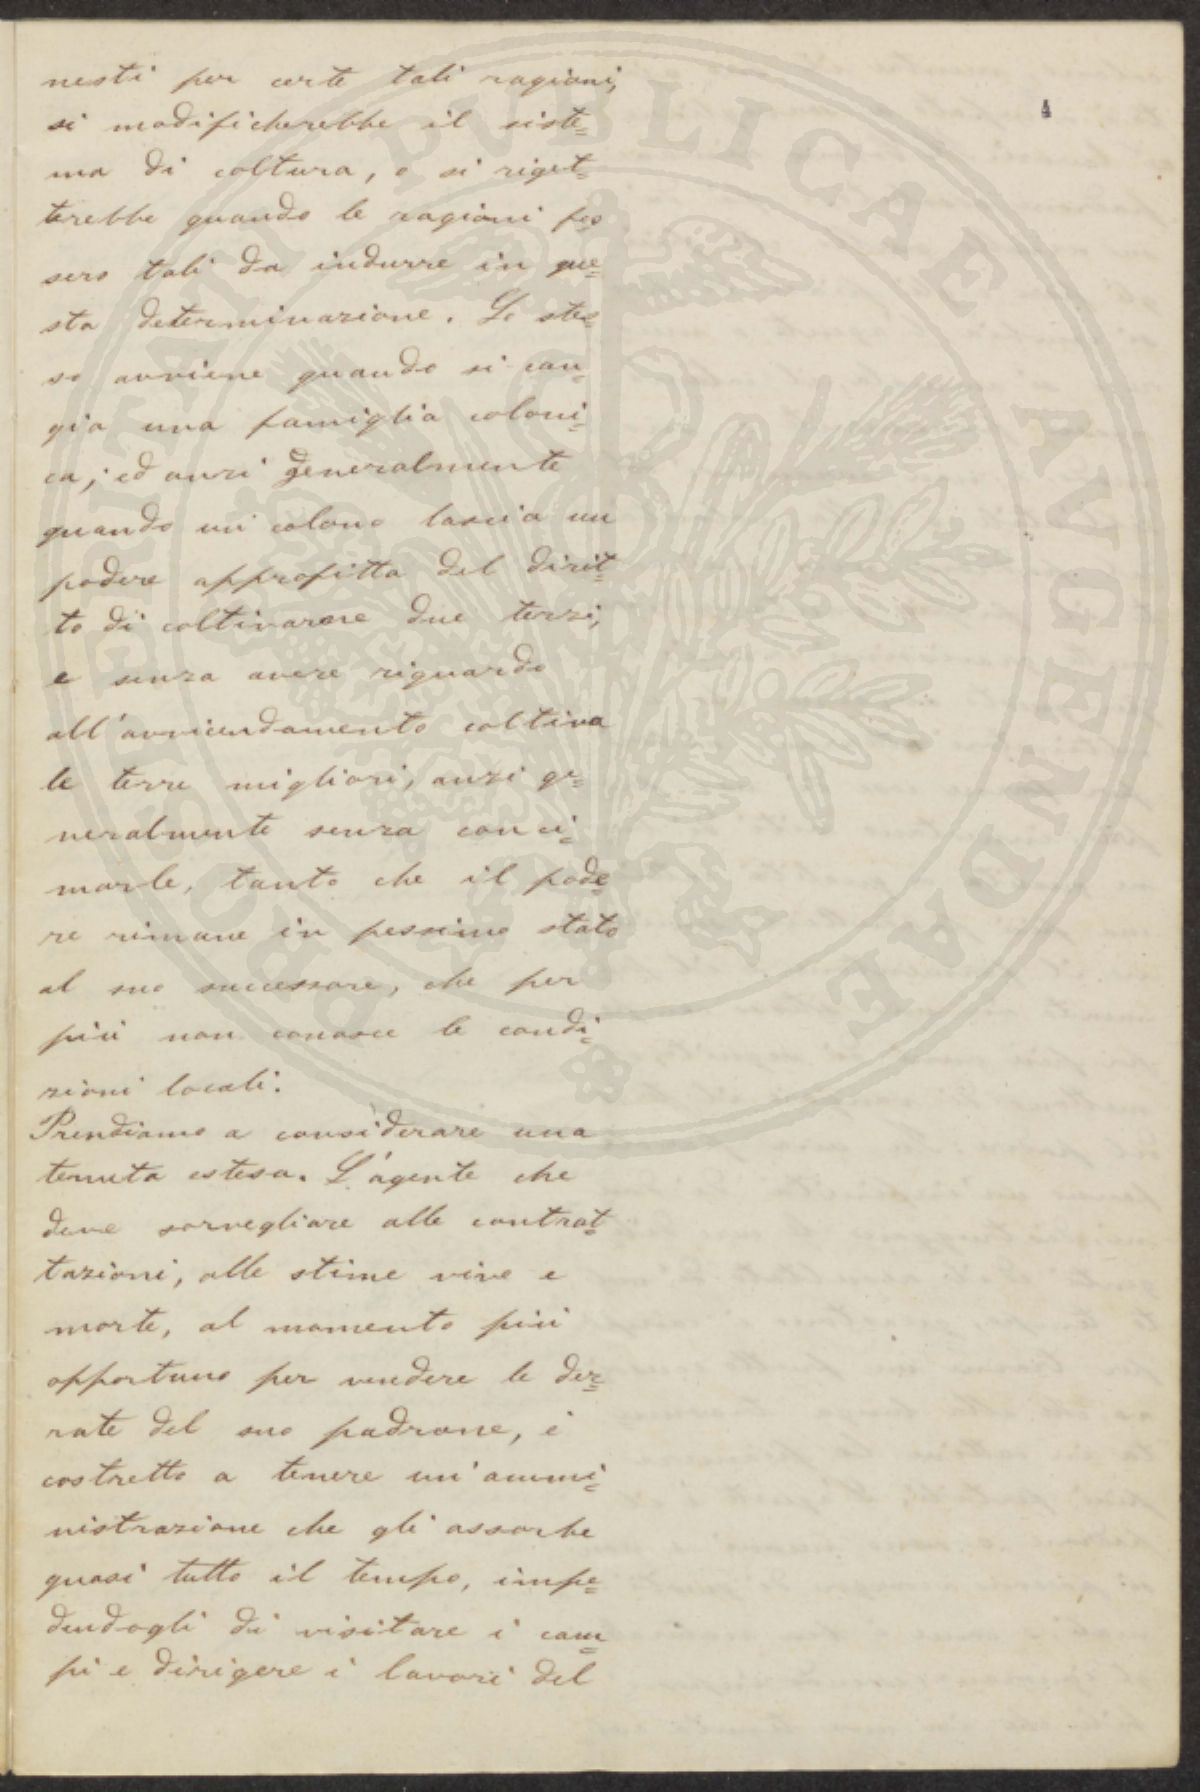 PROSPERITATI PVBLICAE AVGENDAE
4
nesti per certe tali ragioni,
si modificherebbe il siste=
ma di coltura, o si riget=
terebbe quando le ragioni fos
sero tali da indurre in que=
sta determinazione. Lo stes=
so avviene quando si can=
gia una famiglia coloni=
ca; ed anzi generalmente
quando un colono lascia un
podere approfitta del dirit=
to di coltivarne due terzi,
e senza avere riguardo
all'avvicendamento coltiva
le terre migliori, anzi ge=
neralmente senza conci=
marle, tanto che il pode=
re rimane in pessimo stato
al suo successore, che per
più non conosce le condi=
zioni locali.
Prendiamo a considerare una
tenuta estesa. L'agente che
deve sorvegliare alle contrat=
tazioni, alle stime vive e
morte, al momento più
opportuno per vendere le der=
rate del suo padrone, è
costretto a tenere un'ammi=
nistrazione che gli assorbe
quasi tutto il tempo, impe=
dendogli di visitare i cam=
pi e dirigere i lavori del